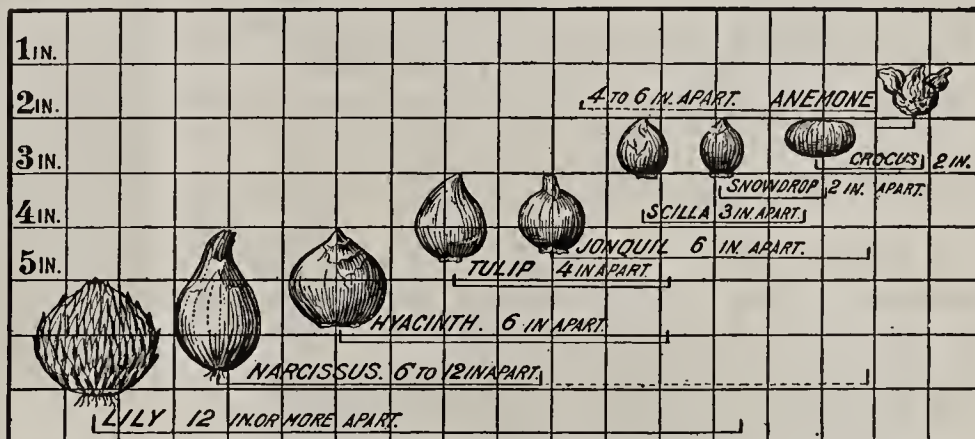 1 IN.
2 IN.
4 TO 6 IN. APART. ANEMONE
3 IN.
CROCUS 2 IN.
SNOWDROP 2 IN. APART.
4 IN.
SCILLA 3 IN. APART.
JONQUIL 6 IN. APART.
5 IN.
TULIP 4 IN APART.
HYACINTH. 6 IN APART.
NARCISSUS. 6 TO 12 IN APART.
LILY 12 IN. OR MORE APART.